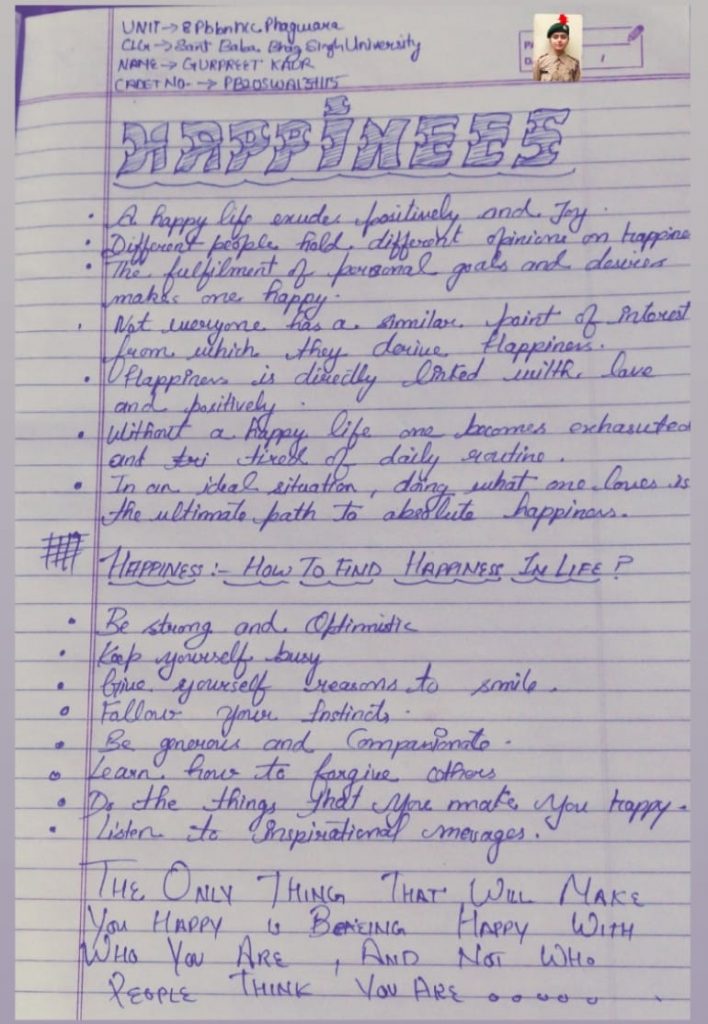 UNIT → 8PbbnNCC Phagwara
CLG → Sant Baba Bhag Singh University
NAME → GURPREET KAUR
CADET NO. → PB20SWA131115
HAPPiNEES
• A happy life exudes positively and Joy.
• Different people hold different opinions on happine
• The fulfilment of personal goals and desires
makes one happy.
• Not everyone has a similar point of interest
from which they derive Happiness.
• Happiness is directly linked with love
and positively.
• Without a happy life one becomes exhasuted
and tri tired of daily routine.
• In an ideal situation, doing what one loves is
the ultimate path to absolute happiness.
HAPPINESS :- HOW TO FIND HAPPINESS IN LIFE?
• Be strong and Optimistic
• Keep yourself busy
• Give yourself reasons to smile.
• Follow your Instincts.
• Be generous and Compassionate.
• Learn how to forgive others
• Do the things that you make you happy.
• Listen to Inspirational messages.
THE ONLY THING THAT WILL MAKE
YOU HAPPY IS BEING HAPPY WITH
WHO YOU ARE, AND NOT WHO
PEOPLE THINK YOU ARE .....